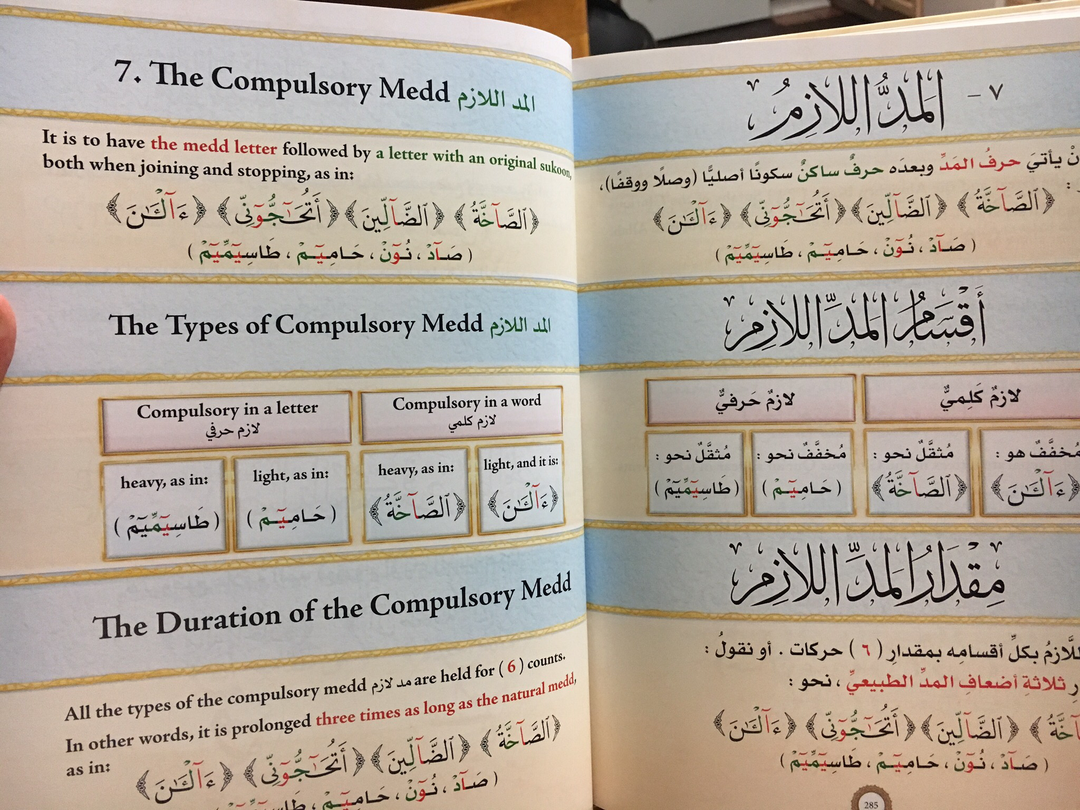 7. The Compulsory Medd المد اللازم
It is to have the medd letter followed by a letter with an original sukoon,
both when joining and stopping, as in:
﴿ ٱلصَّآخَّةُ ﴾ ﴿ ٱلضَّآلِّينَ ﴾ ﴿ أَتُحَـٰٓجُّوٓنِّى ﴾ ﴿ ءَآلْـَٔـٰنَ ﴾
( صَـآدْ ، نُـوٓنْ ، حَـامِيٓـمْ ، طَاسِيٓمِّيٓمْ )
The Types of Compulsory Medd المد اللازم
Compulsory in a letter
لازم حرفي
Compulsory in a word
لازم كلمي
heavy, as in:
( طَاسِيٓمِّيٓمْ )
light, as in:
( حَـامِيٓـمْ )
heavy, as in:
﴿ ٱلصَّآخَّةُ ﴾
light, and it is:
﴿ ءَآلْـَٔـٰنَ ﴾
The Duration of the Compulsory Medd
All the types of the compulsory medd مد لازم are held for ( 6 ) counts.
In other words, it is prolonged three times as long as the natural medd,
as in:
﴿ ٱلصَّآخَّةُ ﴾ ﴿ ٱلضَّآلِّينَ ﴾ ﴿ أَتُحَـٰٓجُّوٓنِّى ﴾ ﴿ ءَآلْـَٔـٰنَ ﴾
( صَـآدْ ، نُـوٓنْ ، حَـامِيٓـمْ ، طَاسِيٓمِّيٓمْ
٧ - المَدُّ اللازِمُ
يأتيَ حرفُ المَدِّ وبعدَه حرفٌ ساكنٌ سكونًا أصليًّا (وصلًا ووقفًا)،
:
﴿ ٱلصَّآخَّةُ ﴾ ﴿ ٱلضَّآلِّينَ ﴾ ﴿ أَتُحَـٰٓجُّوٓنِّى ﴾ ﴿ ءَآلْـَٔـٰنَ ﴾
( صَـآدْ ، نُـوٓنْ ، حَـامِيٓـمْ ، طَاسِيٓمِّيٓمْ )
أَقْسَامُ المَدِّ اللازِمِ
لازمٌ كَلِميٌّ
لازمٌ حَرفيٌّ
مُخففٌ هو :
﴿ ءَآلْـَٔـٰنَ ﴾
مُثقَّلٌ نحو :
﴿ ٱلصَّآخَّةُ ﴾
مُخففٌ نحو :
( حَـامِيٓـمْ )
مُثقَّلٌ نحو :
( طَاسِيٓمِّيٓمْ )
مِقدَارُ المَدِّ اللازِمِ
اللَّازمُ بكلِّ أقسامِه بمقدارِ ( ٦ ) حركات . أو نقولُ :
ثلاثةِ أضعافِ المدِّ الطبيعيِّ ، نحو :
﴿ ٱلضَّآلِّينَ ﴾ ﴿ أَتُحَـٰٓجُّوٓنِّى ﴾ ﴿ ءَآلْـَٔـٰنَ ﴾
( صَـآدْ ، نُـوٓنْ ، حَـامِيٓـمْ ، طَاسِيٓمِّيٓمْ )
285